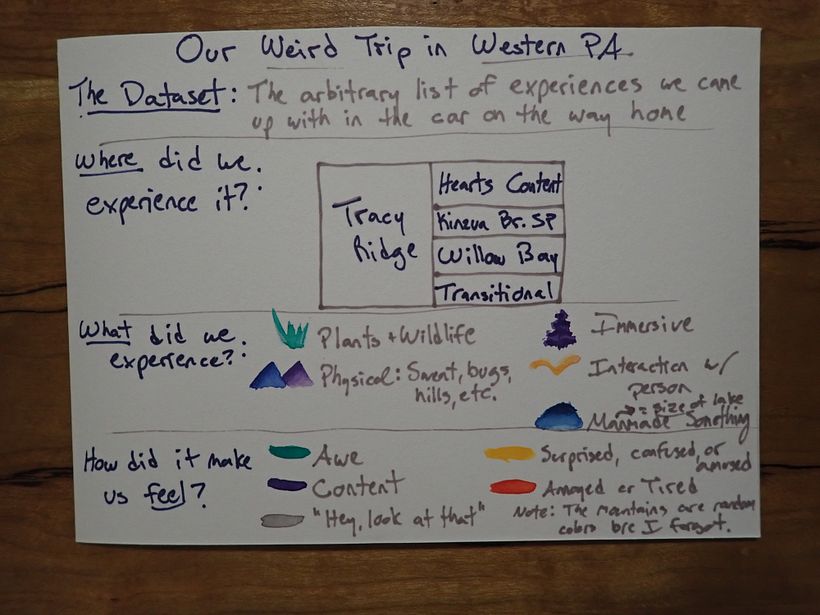 Our Weird Trip in Western PA
The Dataset: The arbitrary list of experiences we came
up with in the car on the way home
Where did we
experience it?:
Tracy
Ridge
Hearts Content
Kinzua Br. SP
Willow Bay
Transitional
What did we
experience?:
Plants + Wildlife
Physical: Sweat, bugs,
hills, etc.
Immersive
Interaction w/
person
→ = size of lake
Manmade Something
How did it make
us feel?
Awe
Content
"Hey, look at that"
Surprised, confused, or
amused
Annoyed or Tired
Note: The mountains are random
colors b/c I forgot.